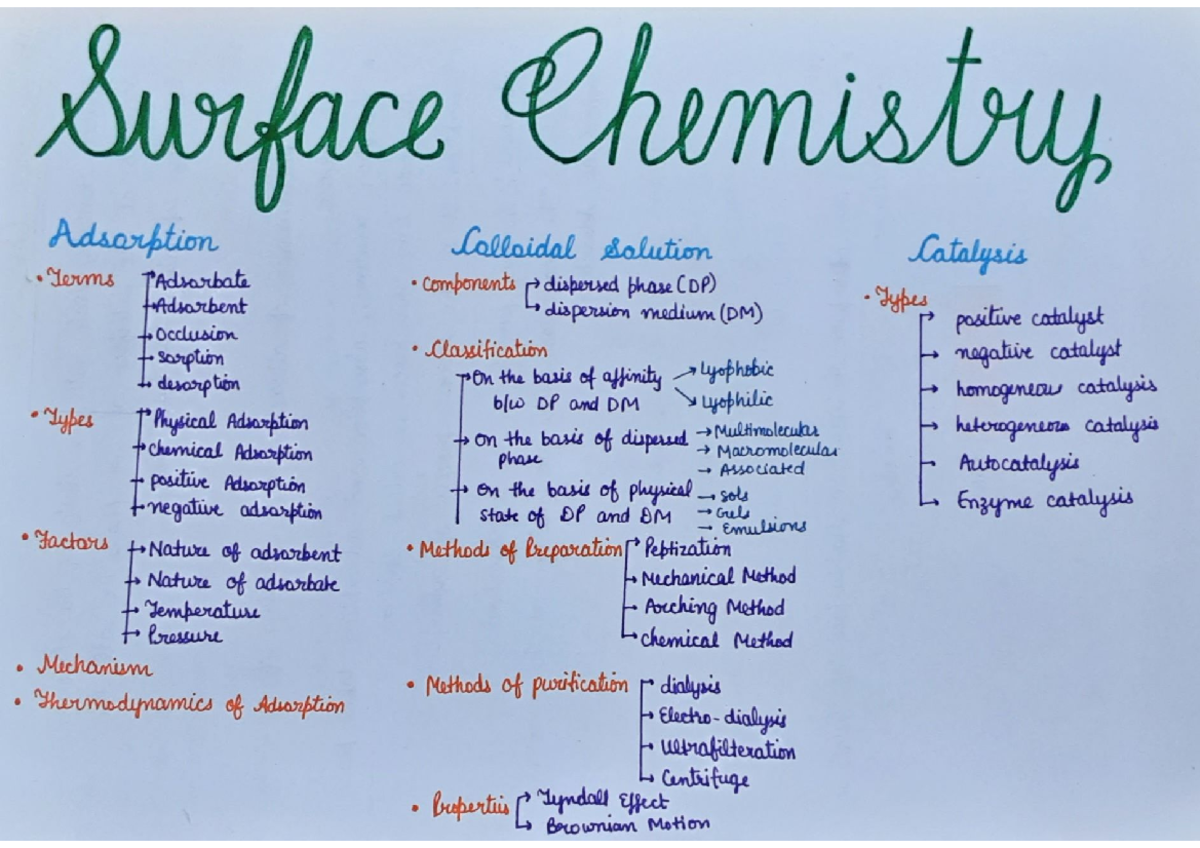 Surface Chemistry
Adsorption
• Terms
Adsorbate
Adsorbent
Occlusion
sorption
desorption
• Types
Physical Adsorption
chemical Adsorption
positive Adsorption
negative adsorption
• Factors
Nature of adsorbent
Nature of adsorbate
Temperature
Pressure
• Mechanism
• Thermodynamics of Adsorption
Colloidal Solution
• Components
dispersed phase (DP)
dispersion medium (DM)
• Classification
On the basis of affinity
b/w DP and DM
Lyophobic
Lyophilic
On the basis of dispersed
phase
Multimolecular
Macromolecular
Associated
On the basis of physical
state of DP and DM
Sols
Gels
Emulsions
• Methods of Preparation
Peptization
Mechanical Method
Arching Method
Chemical Method
• Methods of purification
dialysis
Electro-dialysis
Ultrafilteration
Centrifuge
• Properties
Tyndall Effect
Brownian Motion
Catalysis
• Types
positive catalyst
negative catalyst
homogeneous catalysis
heterogeneous catalysis
Autocatalysis
Enzyme catalysis